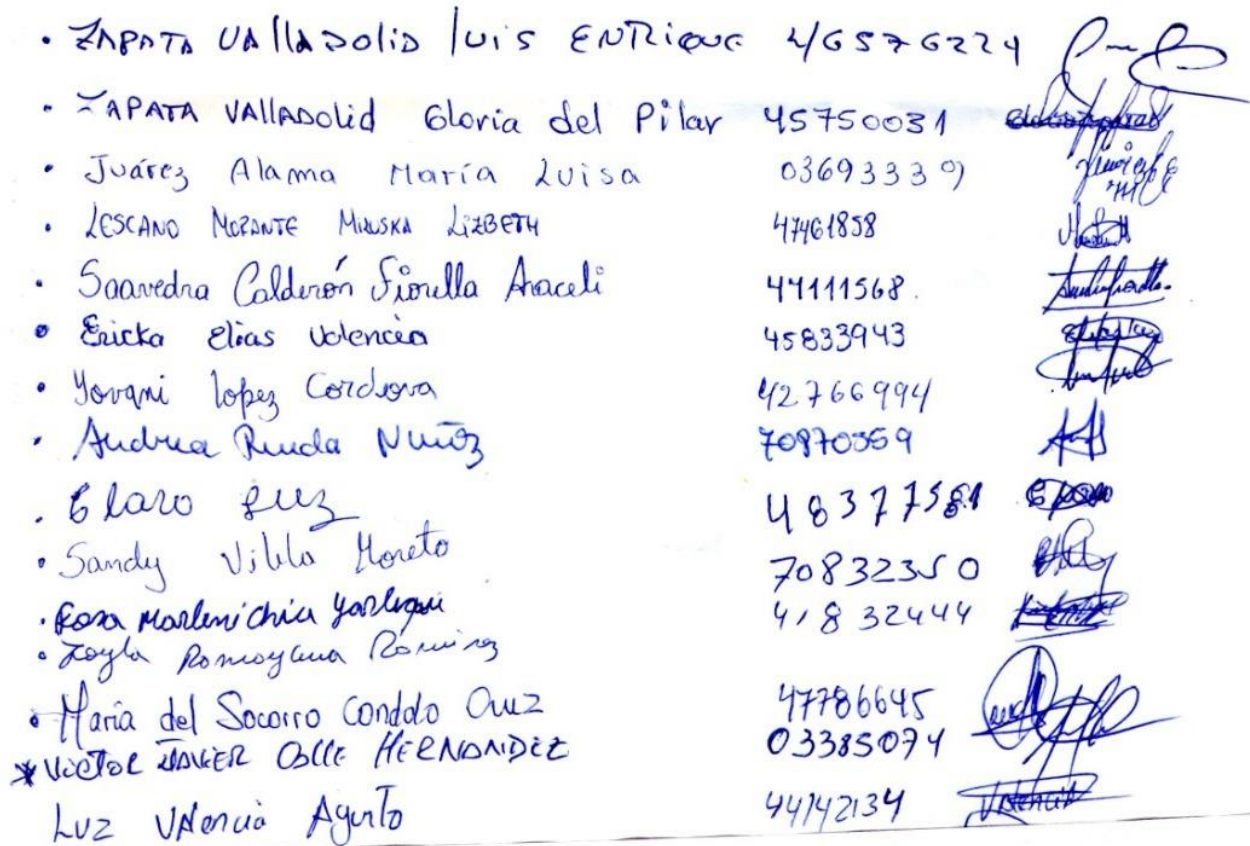 • ZAPATA VAllADOliD luis ENRiQUE 46576224
• ZAPATA VAllADOlid Gloria del Pilar 45750031
• Juárez Alama María Luisa 03693339
• LESCANO MORANTE MIRUSKA LIZBETH 47461858
• Saavedra Calderón Fiorella Araceli 44111568.
• Ericka Elias Valencia 45833943
• Yovani lopez Cordova 42766994
• Andrea Rueda Nuñoz 70870359
• Claro Luz 48377581
• Sandy Vilela Moreto 70832350
• Rosa 41832444
• Zoyla Ramirez
• María del Socorro Condolo Cruz 47786645
* Victor JAVIER Calle HERNANDEZ 03385074
Luz Valencia Agurto 44142134